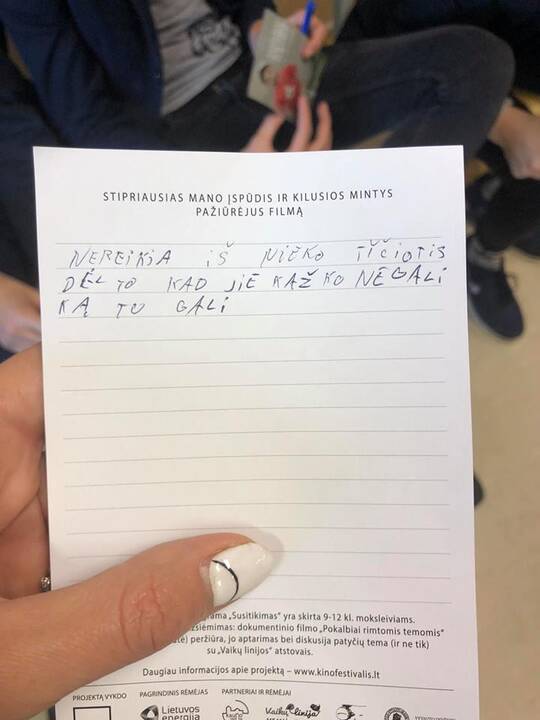 STIPRIAUSIAS MANO ĮSPŪDIS IR KILUSIOS MINTYS
PAŽIŪRĖJUS FILMĄ
NEREIKIA IŠ NIEKO TIČIOTIS
DĖL TO KAD JIE KAŽKO NEGALI
KĄ TU GALI
"Susitikimas" yra skirta 9-12 kl. moksleiviams.
dokumentinio filmo „Pokalbiai rimtomis temomis"
peržiūra, jo aptarimas bei diskusija patyčių tema (ir ne tik)
su „Vaikų linijos" atstovais.
Daugiau informacijos apie projektą – www.kinofestivalis.lt
PROJEKTĄ VYKDO PAGRINDINIS RĖMĖJAS PARTNERIAI IR RĖMĖJAI
Lietuvos energija Vaikų linija